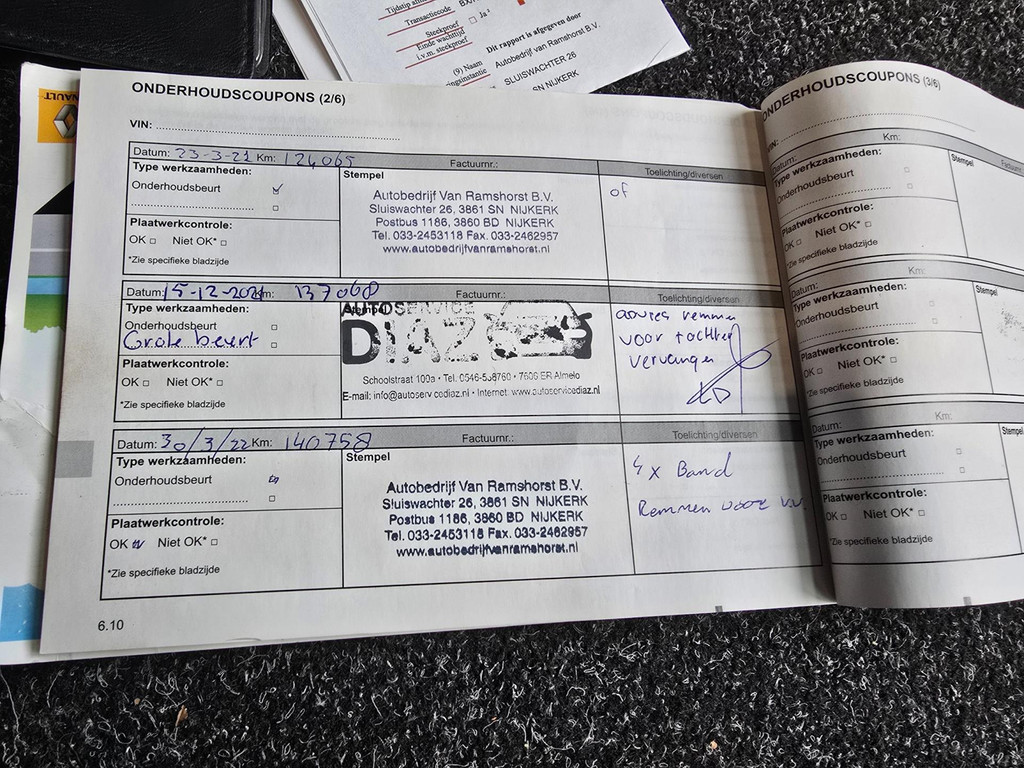 Tijdstip
Transactiecode
Steekproef □ Ja
Einde wachttijd
i.v.m. steekproef
Dit rapport is afgegeven door
(9) Naam
Autobedrijf van Ramshorst B.V.
SLUISWACHTER 26
SN NIJKERK
RENAULT
ONDERHOUDSCOUPONS (2/6)
VIN:
Datum: 23-3-21 Km: 124065 Factuurnr.: Toelichting/diversen
Type werkzaamheden:
Onderhoudsbeurt
Stempel
Autobedrijf Van Ramshorst B.V.
Sluiswachter 26, 3861 SN NIJKERK
Postbus 1186, 3860 BD NIJKERK
Tel. 033-2453118 Fax. 033-2462957
www.autobedrijfvanramshorst.nl
of
Plaatwerkcontrole:
OK □ Niet OK* □
*Zie specifieke bladzijde
Datum: 15-12-2021 Km: 137068 Factuurnr.: Toelichting/diversen
Type werkzaamheden:
Onderhoudsbeurt □
Grote beurt □
Stempel
AUTOSERVICE
DIAZ
Schoolstraat 100a • Tel. 0546-538760 • 7606 ER Almelo
E-mail: info@autoservicediaz.nl • Internet: www.autoservicediaz.nl
advies remmen
voor + achter
vervangen
Plaatwerkcontrole:
OK □ Niet OK* □
*Zie specifieke bladzijde
Datum: 30/3/22 Km: 140758 Factuurnr.: Toelichting/diversen
Type werkzaamheden:
Onderhoudsbeurt
Stempel
Autobedrijf Van Ramshorst B.V.
Sluiswachter 26, 3861 SN NIJKERK
Postbus 1186, 3860 BD NIJKERK
Tel. 033-2453118 Fax. 033-2462957
www.autobedrijfvanramshorst.nl
4 x Band
Remmen voor
Plaatwerkcontrole:
OK Niet OK* □
*Zie specifieke bladzijde
6.10
ONDERHOUDSCOUPONS (3/6)
VIN:
Datum: Km:
Type werkzaamheden:
Onderhoudsbeurt □
Stempel
Plaatwerkcontrole:
OK □ Niet OK* □
*Zie specifieke bladzijde
Datum: Km:
Type werkzaamheden:
Onderhoudsbeurt □
Stempel
Plaatwerkcontrole:
OK □ Niet OK* □
*Zie specifieke bladzijde
Datum: Km:
Type werkzaamheden:
Onderhoudsbeurt □
Plaatwerkcontrole:
OK □ Niet OK* □
*Zie specifieke bladzijde